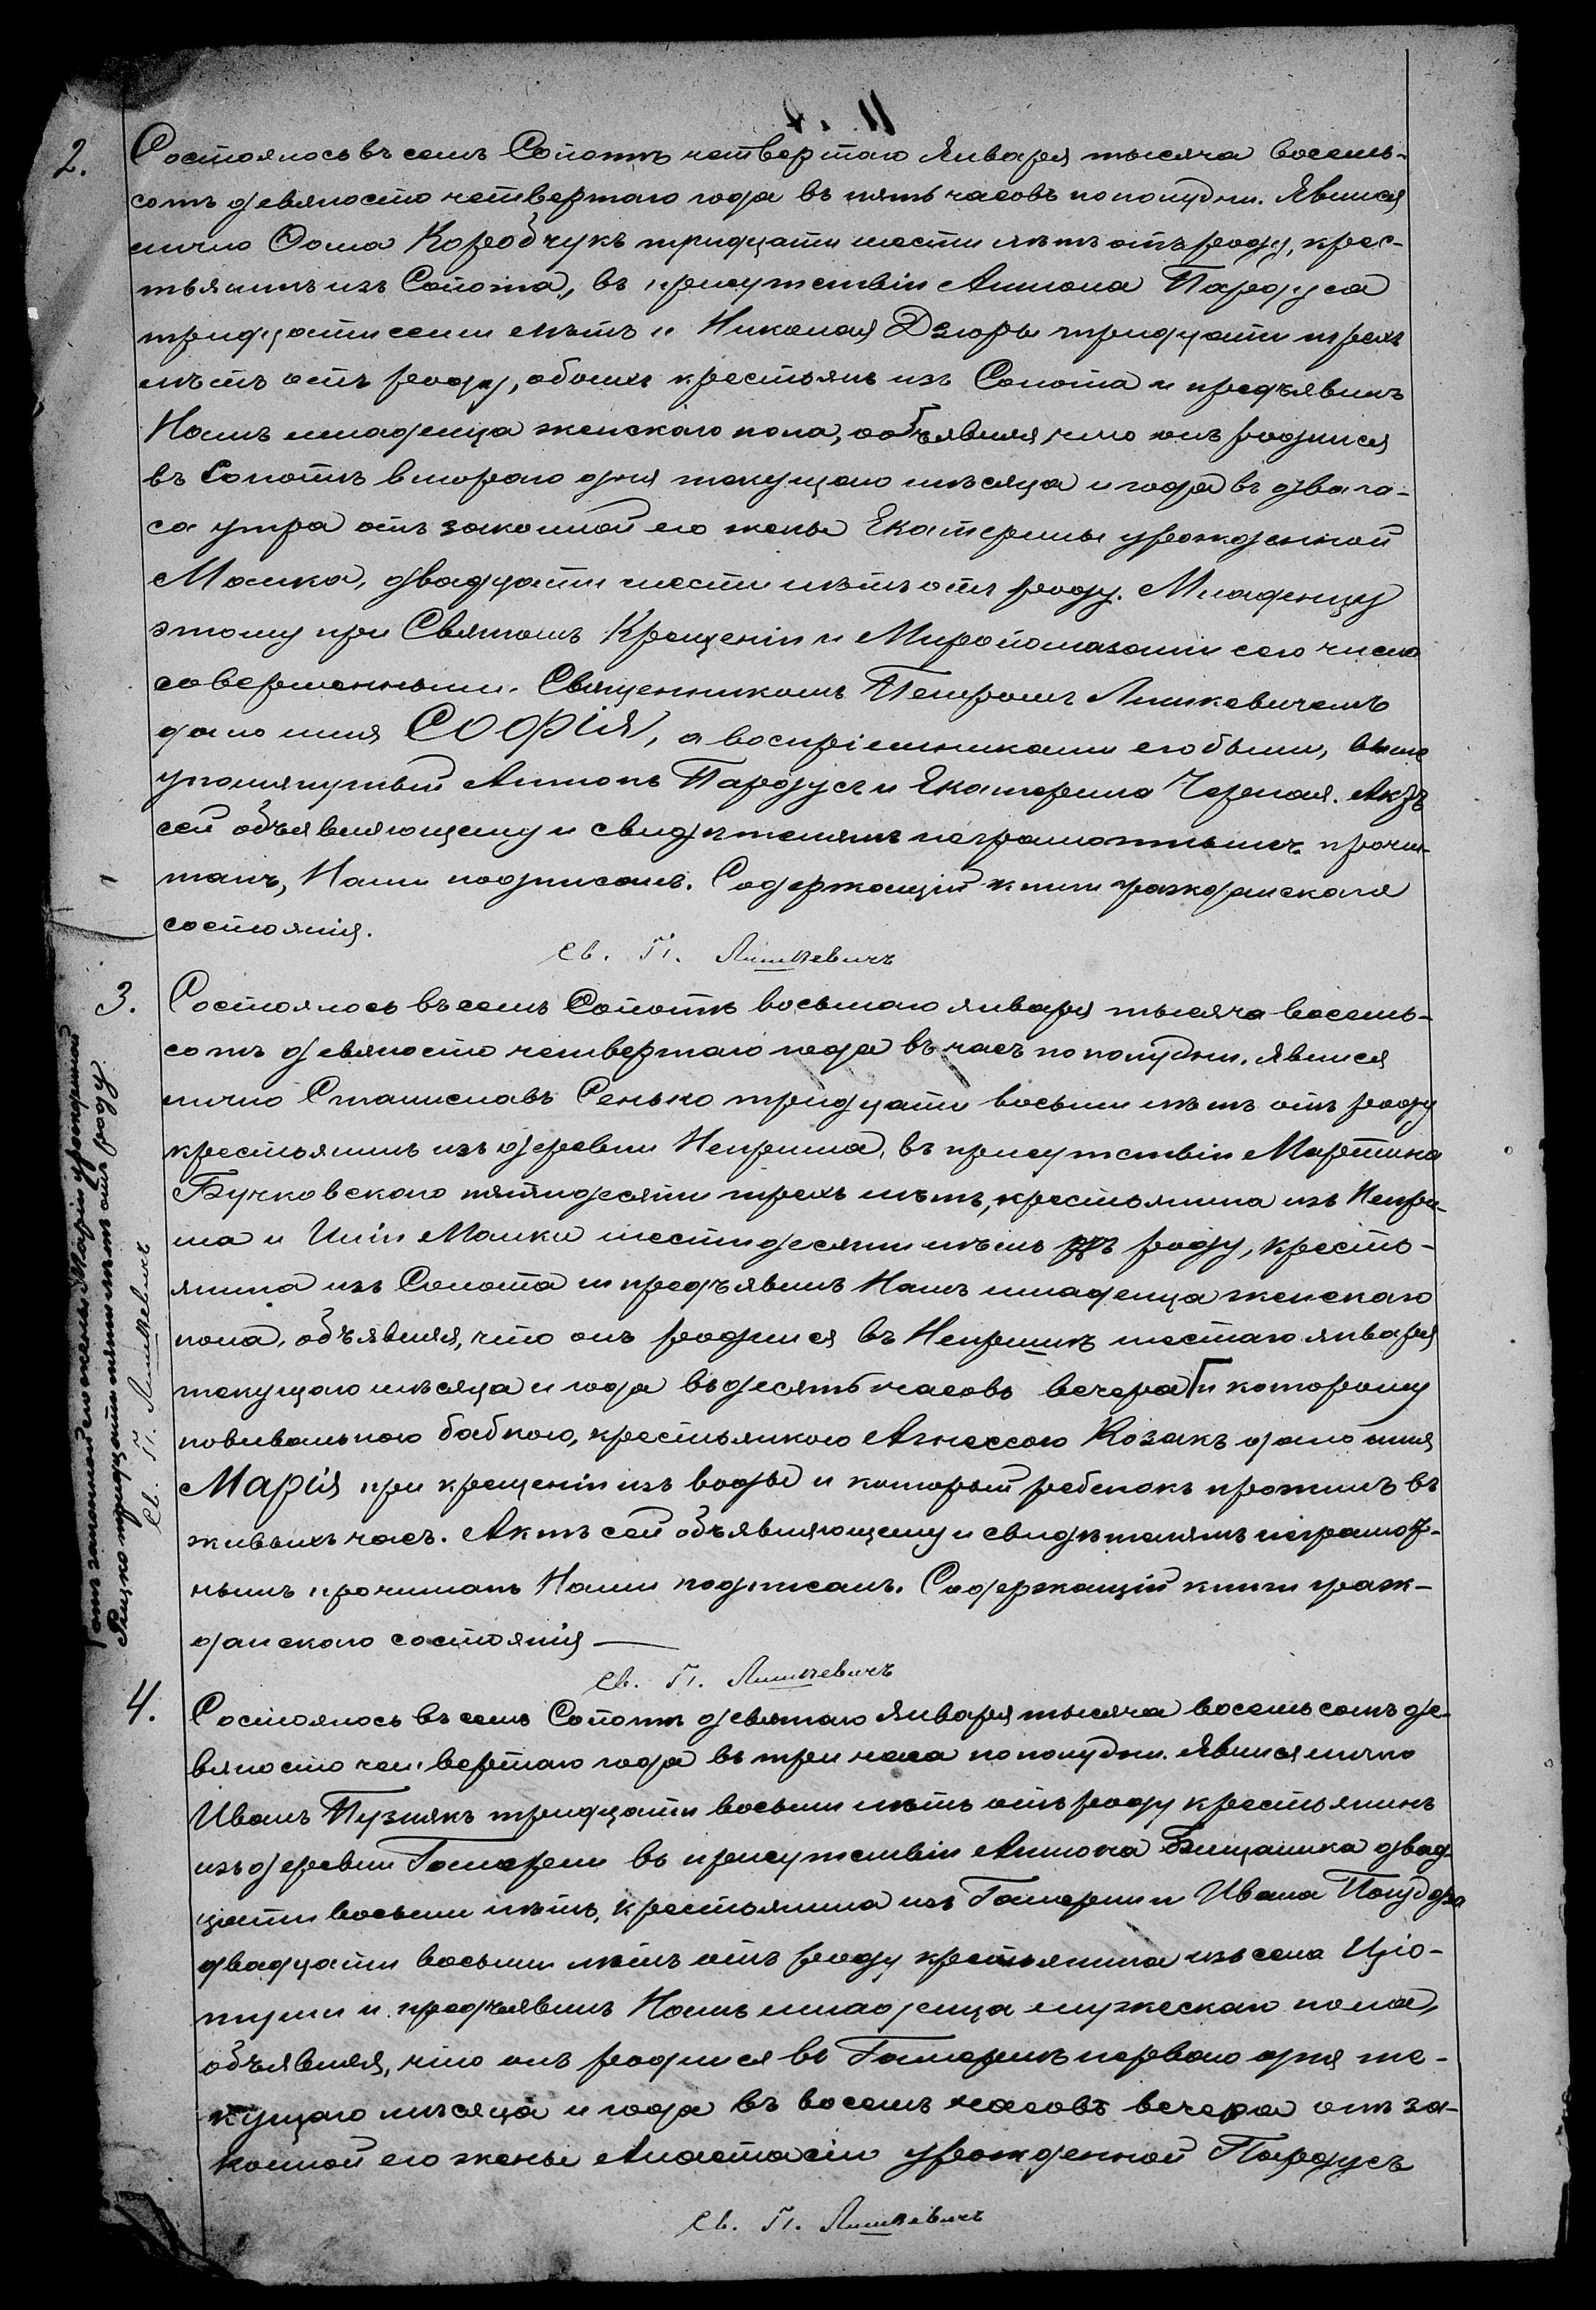 2.
Состоялось въ селѣ Сопотѣ четвертаго Января тысяча восемь-
сотъ девяносто четвертаго года въ пять часовъ по полудни. Явился
лично Ѳома Коробчукъ тридцати шести лѣтъ отъ роду, крес-
тьянинъ изъ Сопота, въ присутствіи Антона Пардуса
тридцати семи лѣтъ и Николая Дзюры тридцати трехъ
лѣтъ отъ роду, обоихъ крестьянъ изъ Сопота и предъявилъ
Намъ младенца женскаго пола, объявляя, что онъ родился
въ Сопотѣ втораго дня текущаго мѣсяца и года въ два ча-
са утра отъ законной его жены Екатерины урожденной
Малика, двадцати шести лѣтъ отъ роду. Младенцу
этому при Святомъ Крещеніи и Миропомазаніи сего числа
совершенными Священникомъ Петромъ Лишкевичемъ
дано имя СОФІЯ, а воспріемниками его были, выше
упомянутый Антонъ Пардусъ и Екатерина Черная. Актъ
сей объявляющему и свидѣтелямъ неграмотнымъ прочи-
танъ, Нами подписанъ. Содержащій книги гражданскаго
состоянія.
Св. П. Лишкевичъ
3.
Состоялось въ селѣ Сопотѣ восьмаго января тысяча восемь-
сотъ девяносто четвертаго года въ часъ по полудни. Явился
лично Станиславъ Сенько тридцати восьми лѣтъ отъ роду
крестьянинъ изъ деревни Неприша, въ присутствіи Мартина
Бучковскаго пятидесяти трехъ лѣтъ, крестьянина изъ Непри-
ша и Иліи Малики шестидесяти лѣтъ отъ роду, кресть-
янина изъ Сопота и предъявилъ Намъ младенца женскаго
пола, объявляя, что онъ родился въ Непришѣ шестаго января
текущаго мѣсяца и года въ десять часовъ вечера и которому
повивальною бабкою, крестьянкою Агнессою Козакъ дано имя
Марія при крещеніи изъ воды и который ребенокъ прожилъ въ
живыхъ часъ. Актъ сей объявляющему и свидѣтелямъ неграмот-
нымъ прочитанъ Нами подписанъ. Содержащій книги граж-
данскаго состоянія
Св. П. Лишкевичъ
отъ законной его жены Маріи урожденной
тридцати пяти лѣтъ отъ роду
Св. П. Лишкевичъ
4.
Состоялось въ селѣ Сопотѣ девятаго Января тысяча восемьсотъ де-
вяносто четвертаго года въ три часа по полудни. Явился лично
Иванъ Пузнякъ тридцати восьми лѣтъ отъ роду крестьянинъ
изъ деревни Гамерни въ присутствіи Антона Бищаника двад-
цати восьми лѣтъ, крестьянина изъ Гамерни и Ивана
двадцати восьми лѣтъ отъ роду крестьянина изъ села Ціо-
туши и предъявилъ Намъ младенца мужескаго пола,
объявляя, что онъ родился въ Гамернѣ перваго дня те-
кущаго мѣсяца и года въ восемь часовъ вечера отъ за-
конной его жены Анастасіи урожденной Пардусъ
Св. П. Лишкевичъ